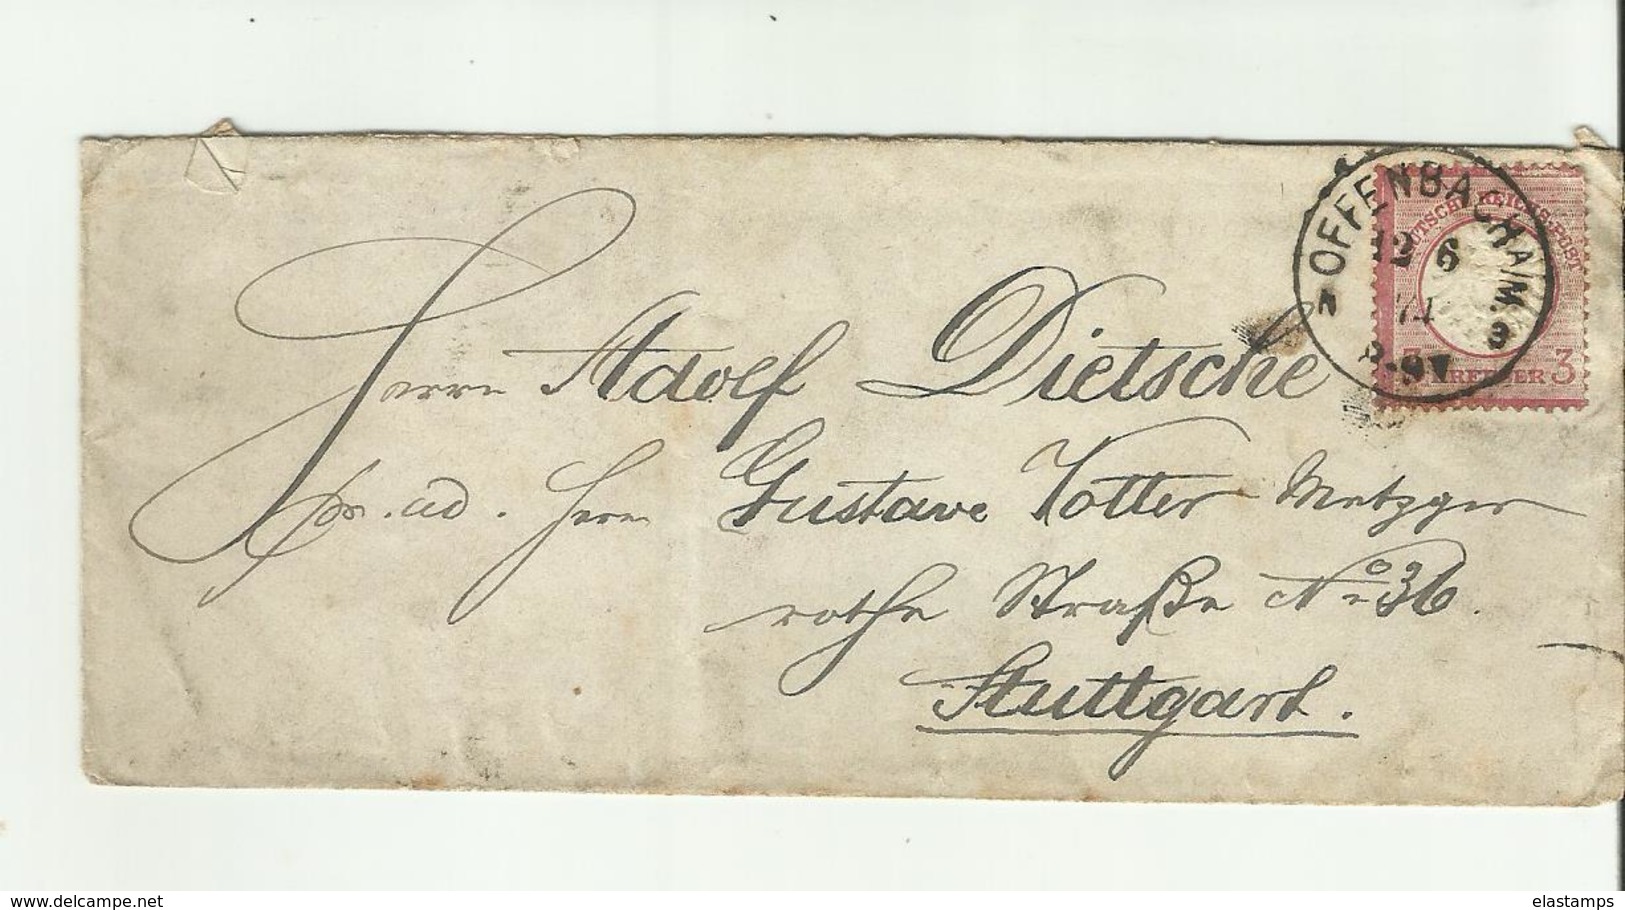 OFFENBACH A/M. 3
12 6
74
8-9 V
N
DEUTSCHE REICHS-POST
KREUZER 3
Herrn Adolf Dietsche
pr. ad. Herrn Gustave Kotter Metzger
rothe Straße No 36.
Stuttgart.
elastamps